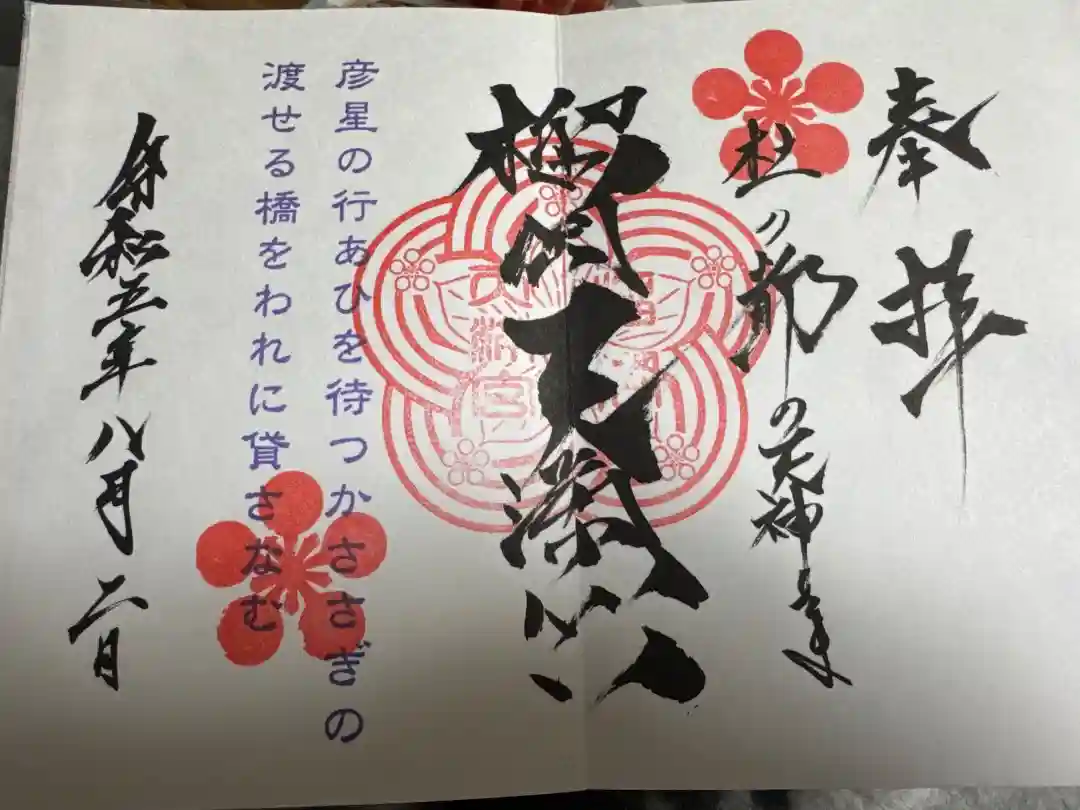 奉拝
杜の都の天神さま
榴岡天満宮
彦星の行あひを待つかささぎの
渡せる橋をわれに貸さなむ
令和五年八月二日